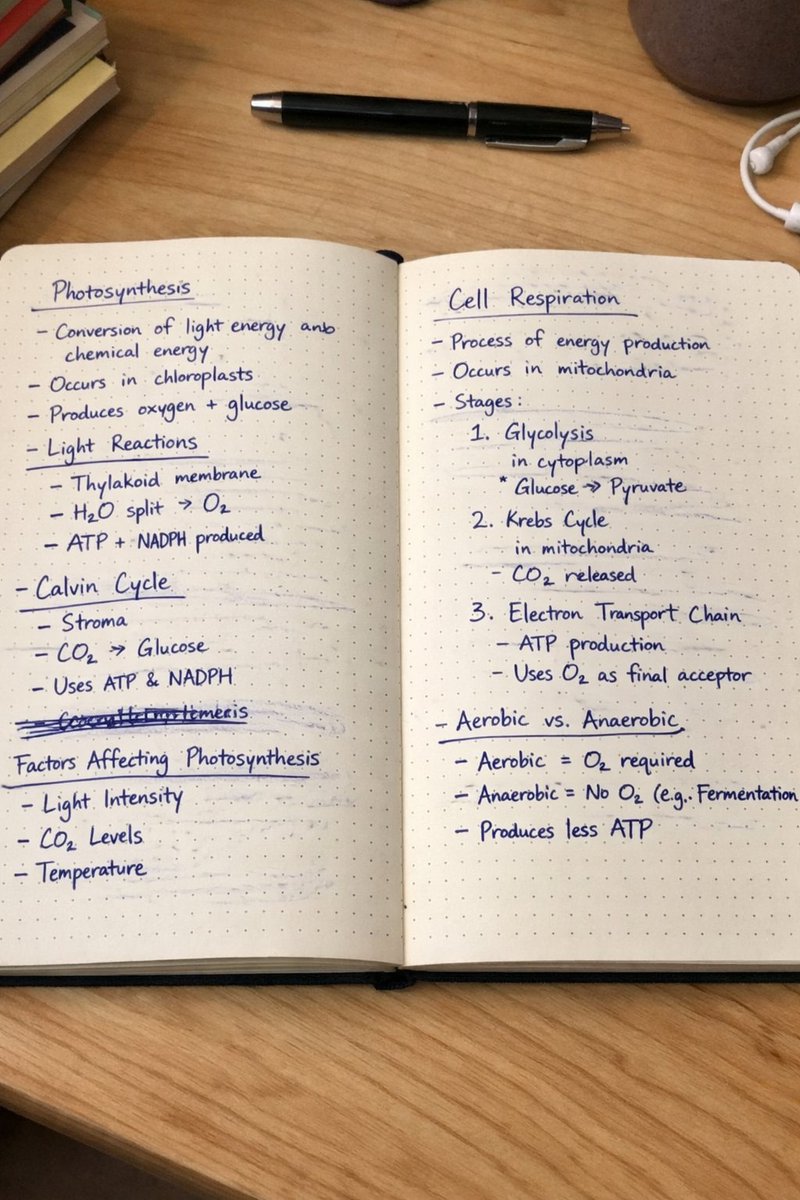 Photosynthesis
- Conversion of light energy anb
chemical energy
- Occurs in chloroplasts
- Produces oxygen + glucose
- Light Reactions
- Thylakoid membrane
- H₂O split → O₂
- ATP + NADPH produced
- Calvin Cycle
- Stroma
- CO₂ → Glucose
- Uses ATP & NADPH
Factors Affecting Photosynthesis
- Light Intensity
- CO₂ Levels
- Temperature
Cell Respiration
- Process of energy production
- Occurs in mitochondria
- Stages:
1. Glycolysis
in cytoplasm
* Glucose → Pyruvate
2. Krebs Cycle
in mitochondria
- CO₂ released
3. Electron Transport Chain
- ATP production
- Uses O₂ as final acceptor
- Aerobic vs. Anaerobic
- Aerobic = O₂ required
- Anaerobic = No O₂ (e.g. Fermentation
- Produces less ATP